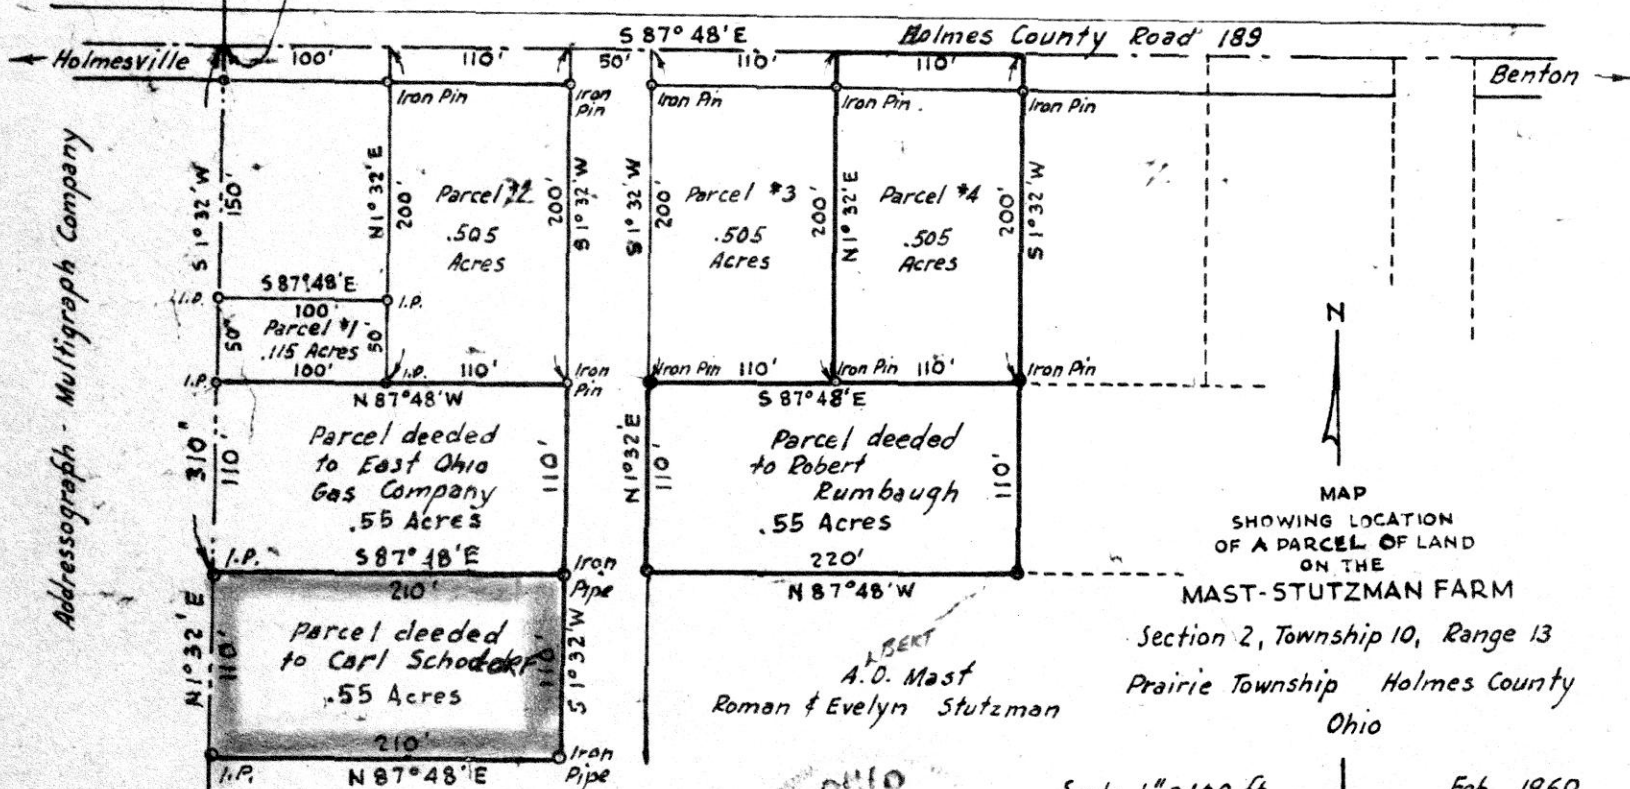 S 87° 48' E
Holmes County Road 189
Holmesville
100'
110'
50'
110'
110'
Benton
Iron Pin
Iron Pin
Iron Pin
Iron Pin
Iron Pin
Addressograph - Multigraph Company
S 1° 32' W
150'
N 1° 32' E
200'
Parcel #2
.505
Acres
200'
S 1° 32' W
S 1° 32' W
200'
Parcel #3
.505
Acres
200'
N 1° 32' E
Parcel #4
.505
Acres
200'
S 1° 32' W
I.P.
S 87° 48' E
I.P.
100'
50'
Parcel #1
.115 Acres
50
I.P.
100'
I.P.
110'
Iron Pin
Iron Pin
110'
Iron Pin
110'
Iron Pin
N 87° 48' W
S 87° 48' E
310"
110'
Parcel deeded
to East Ohio
Gas Company
.55 Acres
110'
N 1° 32' E
110'
Parcel deeded
to Robert
Rumbaugh
.55 Acres
110'
220'
N 87° 48' W
I.P.
S 87° 48' E
Iron Pipe
210'
N 1° 32' E
110'
Parcel deeded
to Carl
.55 Acres
110'
S 1° 32' W
210'
I.P.
N 87° 48' E
Iron Pipe
BERT
A.D. Mast
Roman & Evelyn Stutzman
N
MAP
SHOWING LOCATION
OF A PARCEL OF LAND
ON THE
MAST-STUTZMAN FARM
Section 2, Township 10, Range 13
Prairie Township Holmes County
Ohio
OHIO
Feb. 1960